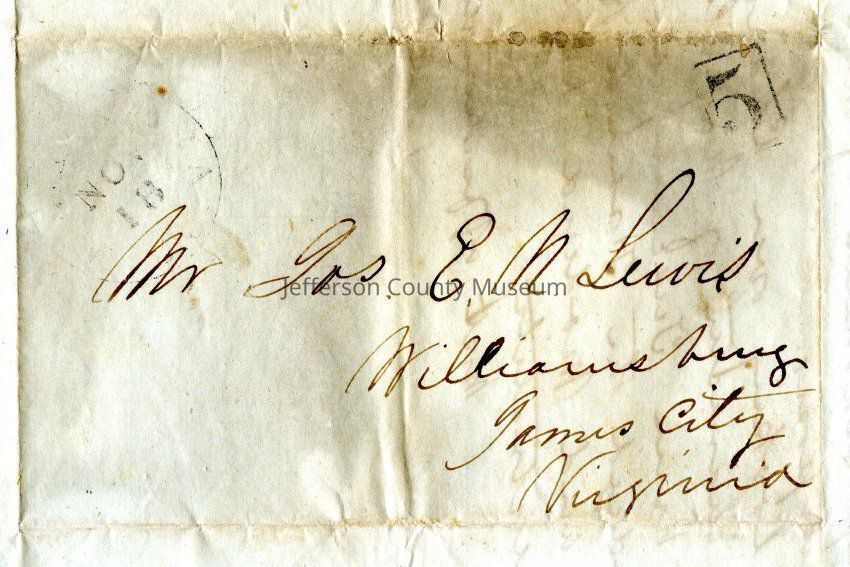 5
NOV
18
VA
Mr Jos. E. N Lewis
Jefferson County Museum
Williamsburg
James City
Virginia